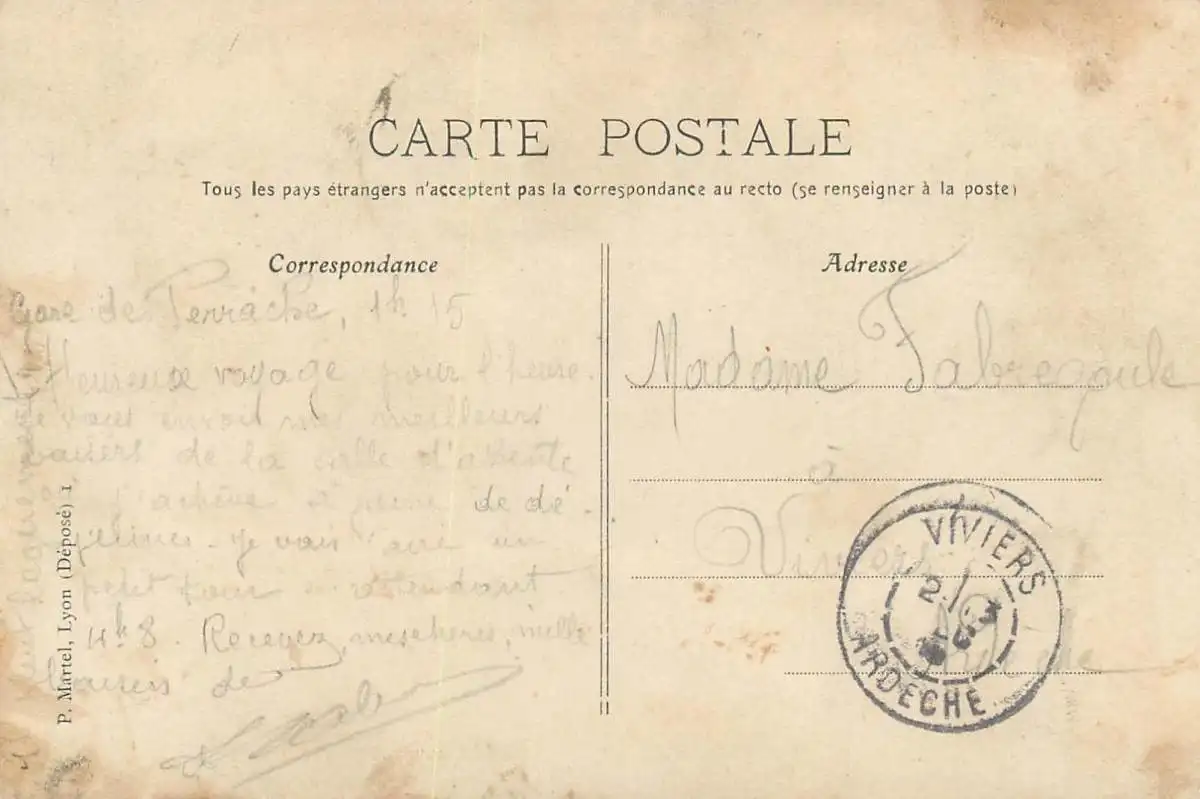 CARTE POSTALE
Tous les pays étrangers n'acceptent pas la correspondance au recto (se renseigner à la poste)
Correspondance
Gare de Perrâche, 1h 15
Heureux voyage pour l'heure.
Je vous envoie mes meilleurs
baisers de la salle d'attente
J'achève à peine de dé-
jeuner. Je vais faire un
petit tour en attendant
4h8. Recevez, mes chères, mille
baisers de
P. Martel, Lyon (Déposé) 1
Adresse
Madame Fabregoule
à
Viviers
Ardèche
VIVIERS
2
ARDECHE